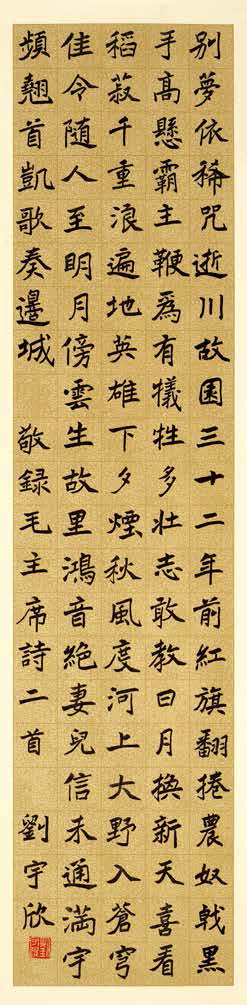 別夢依稀咒逝川故園三十二年前紅旗翻捲農奴戟黑
手高懸霸主鞭爲有犧牲多壯志敢教日月換新天喜看
稻菽千重浪遍地英雄下夕煙秋風度河上大野入蒼穹
佳令隨人至明月傍雲生故里鴻音絕妻兒信未通滿宇
頻翹首凱歌奏邊城 敬録毛主席詩二首 劉宇欣